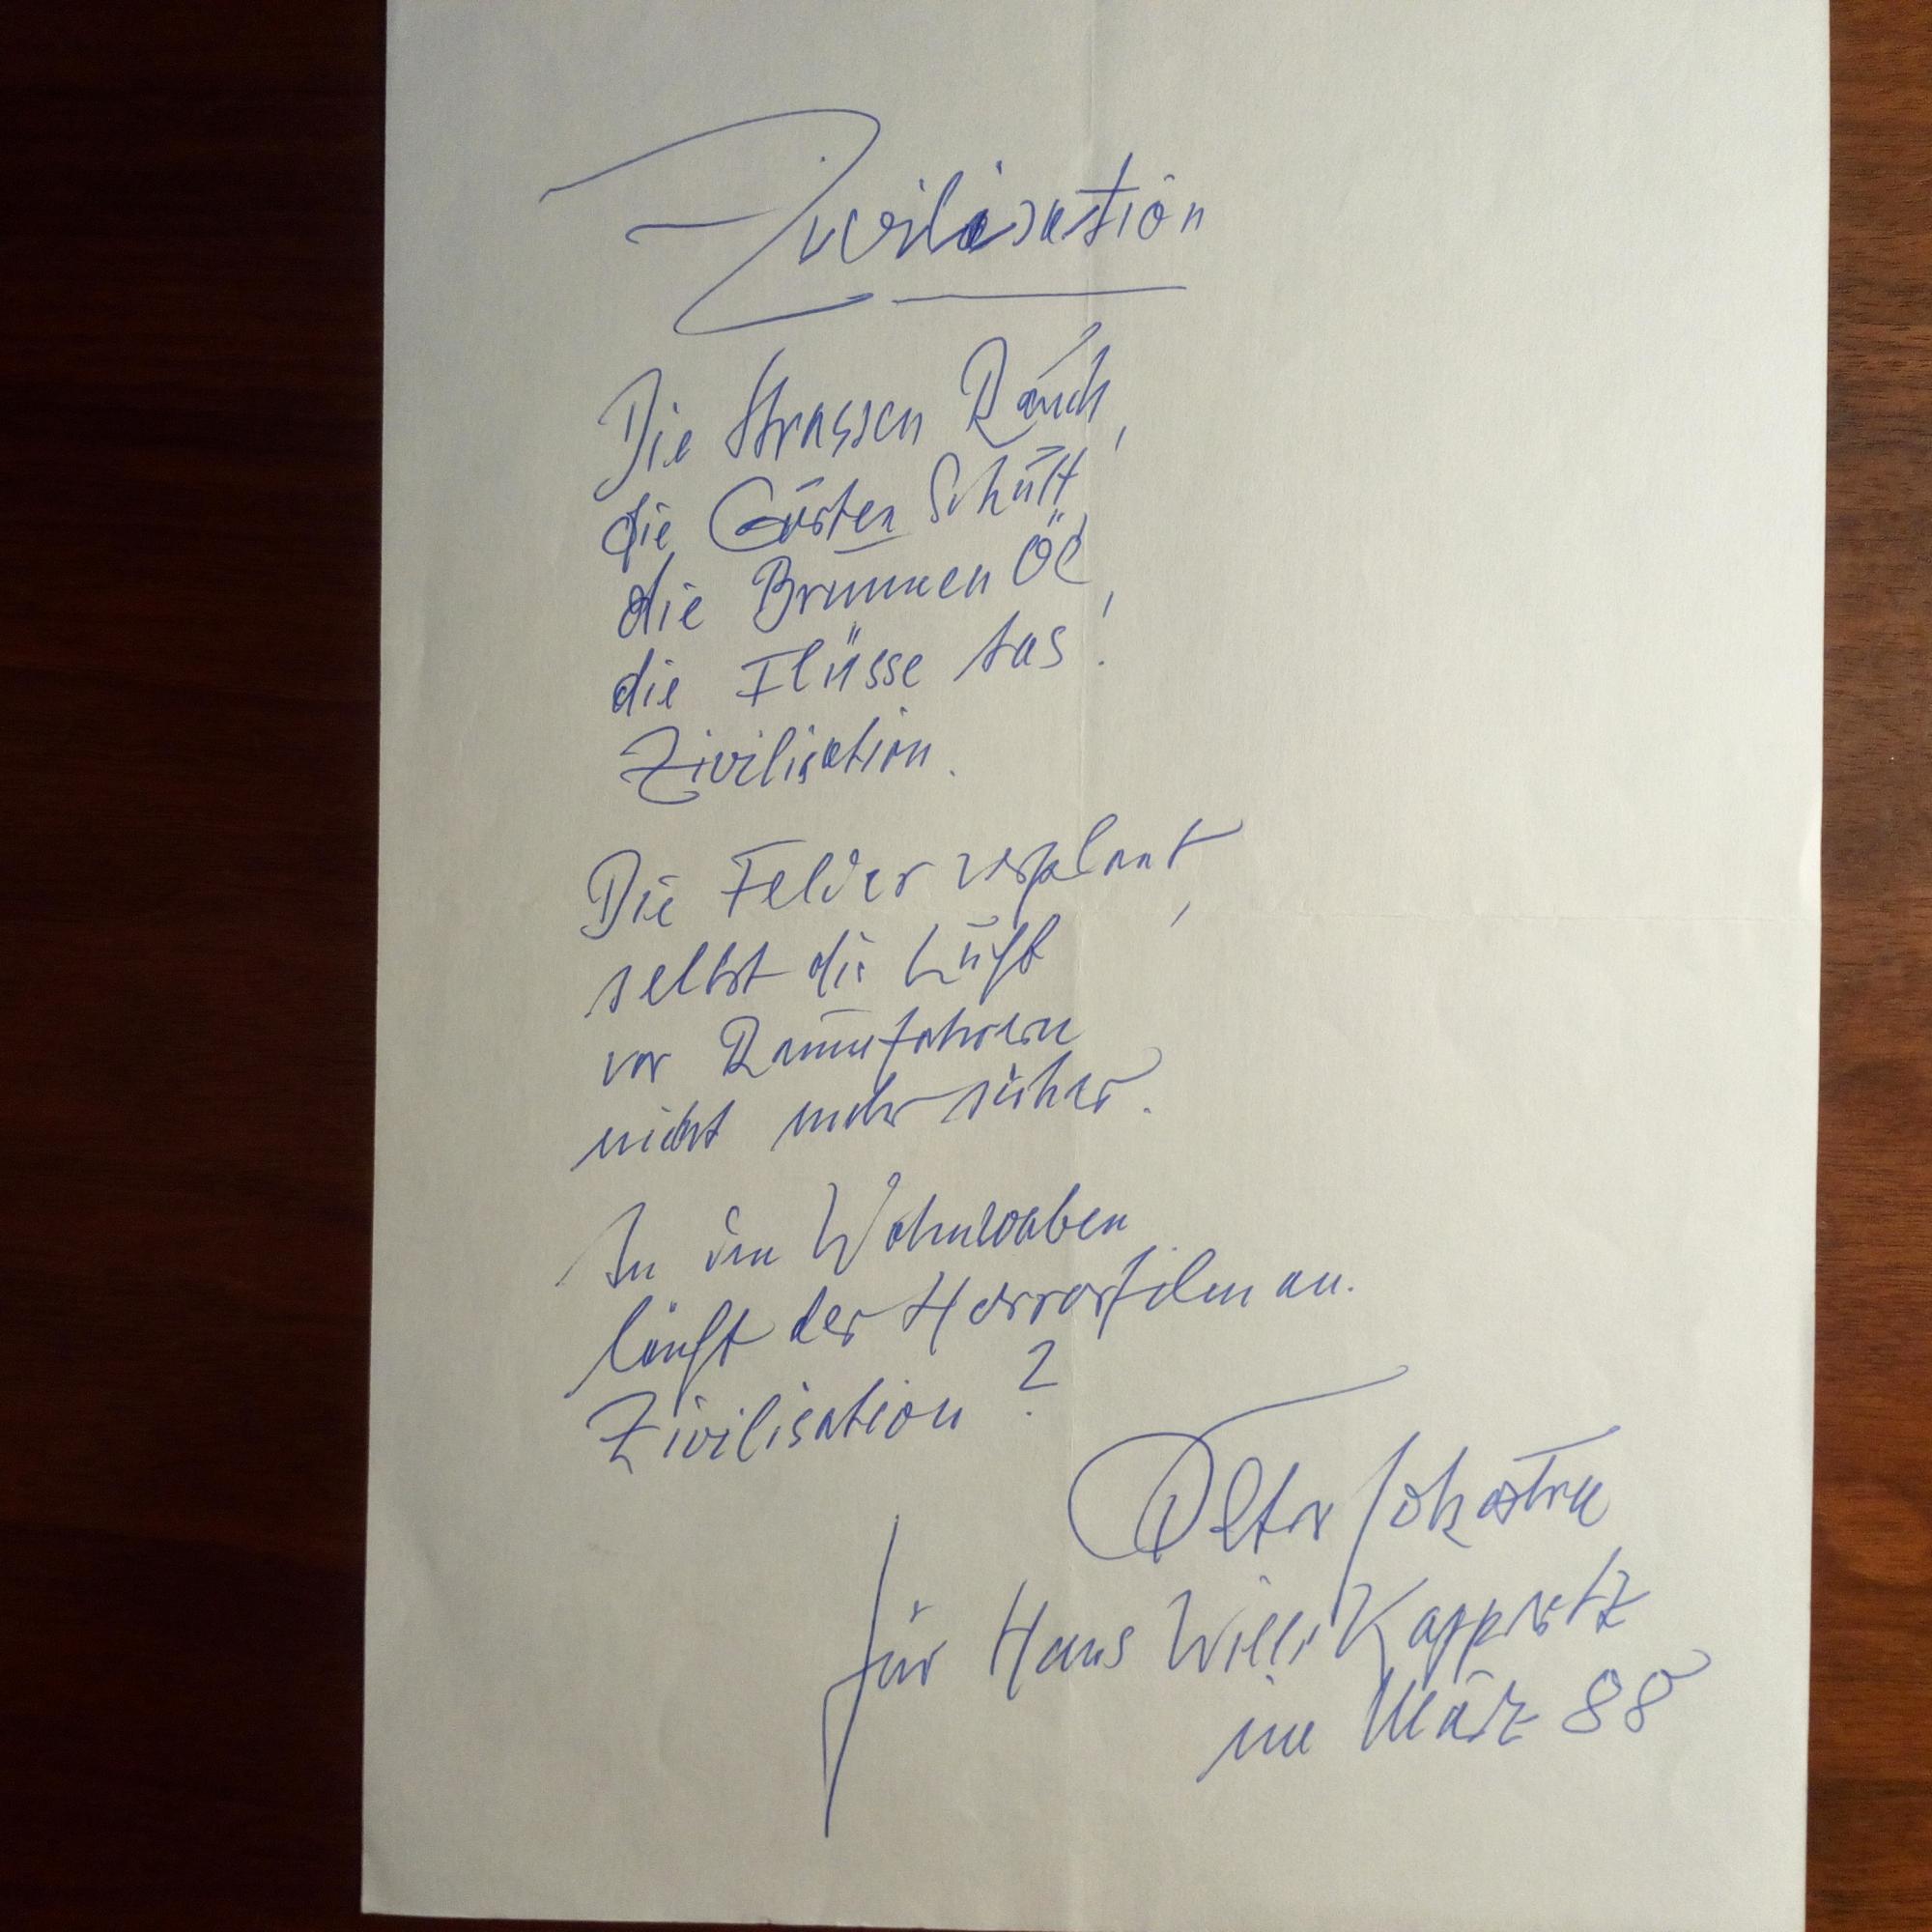 Zivilisation
Die Strassen Rauch,
die Gärten Schutt,
die Brunnen Öl,
die Flüsse Gas!
Zivilisation.
Die Felder verplant,
selbst die Luft
vor Raumfahrern
nicht mehr sicher.
In den Wohnwaben
läuft der Horrorfilm an.
Zivilisation?
Peter Jokostra
für Hans Willi Kappertz
im März 88